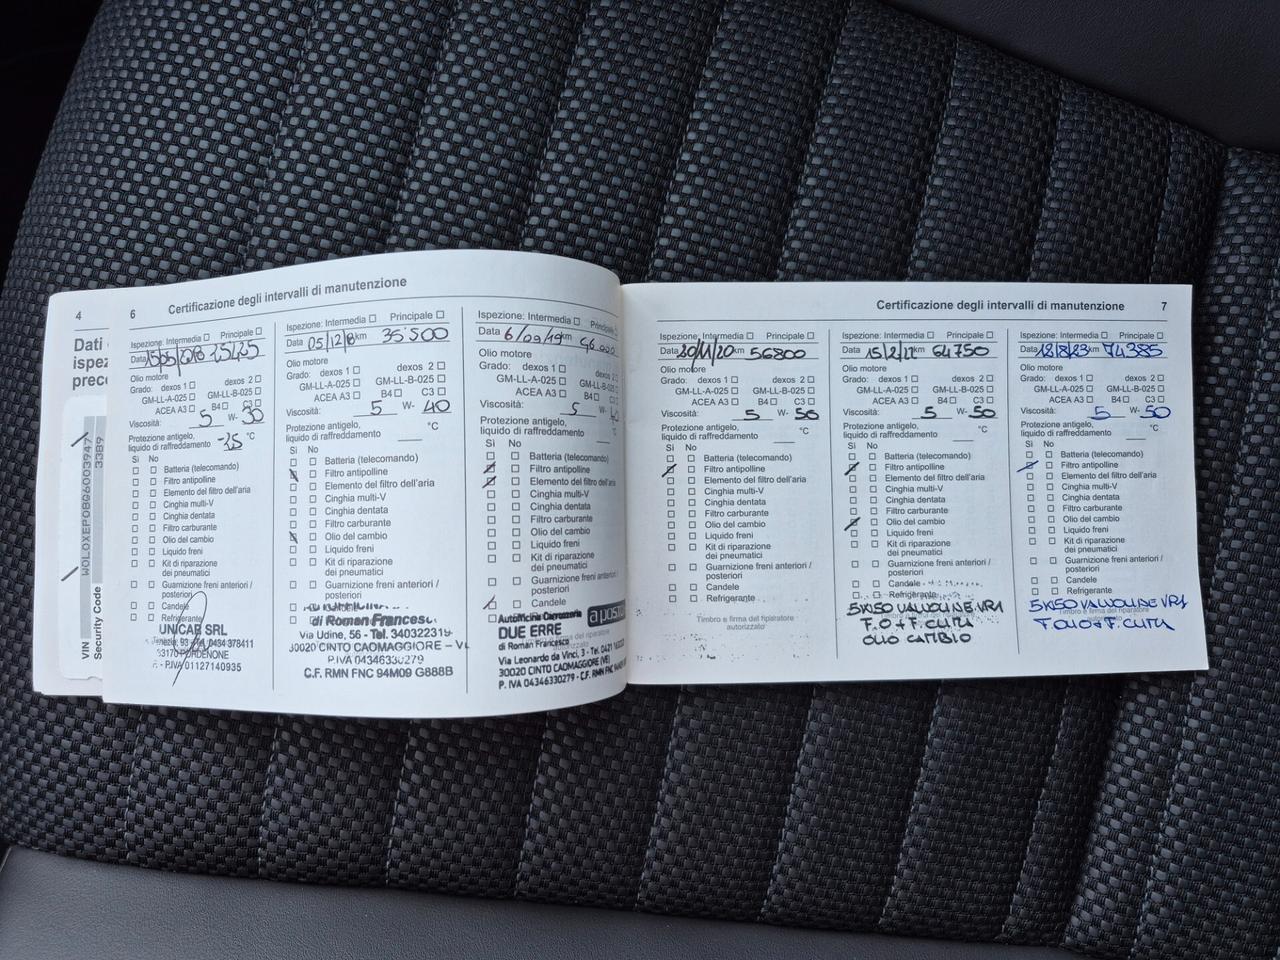 4
Dati
ispez
prece
VIN W0L0XEP08G6003947
Security Code 33B9
6
Certificazione degli intervalli di manutenzione
Ispezione: Intermedia ☐ Principale ☐
Data
Olio motore
Grado: dexos 1 ☐ dexos 2 ☐
GM-LL-A-025 ☐ GM-LL-B-025 ☐
ACEA A3 ☐ B4 ☐ C3 ☐
Viscosità: 5 W- 30
Protezione antigelo,
liquido di raffreddamento -25 °C
Sì No
Batteria (telecomando)
Filtro antipolline
Elemento del filtro dell'aria
Cinghia multi-V
Cinghia dentata
Filtro carburante
Olio del cambio
Liquido freni
Kit di riparazione
dei pneumatici
Guarnizione freni anteriori /
posteriori
Candele
Refrigerante
UNICAR SRL
33170 PORDENONE
P.IVA 01127140935
Ispezione: Intermedia ☐ Principale ☐
Data 05/12/18 km 35'500
Olio motore
Grado: dexos 1 ☐ dexos 2 ☐
GM-LL-A-025 ☐ GM-LL-B-025 ☐
ACEA A3 ☐ B4 ☐ C3 ☐
Viscosità: 5 W- 40
Protezione antigelo,
liquido di raffreddamento °C
Sì No
Batteria (telecomando)
Filtro antipolline
Elemento del filtro dell'aria
Cinghia multi-V
Cinghia dentata
Filtro carburante
Olio del cambio
Liquido freni
Kit di riparazione
dei pneumatici
Guarnizione freni anteriori /
posteriori
di Roman Francesc
Via Udine, 56 - Tel. 340322319
30020 CINTO CAOMAGGIORE - VE
P.IVA 04346330279
C.F. RMN FNC 94M09 G888B
Ispezione: Intermedia ☐ Principale
Data 6/09/19 km
Olio motore
Grado: dexos 1 ☐ dexos 2
GM-LL-A-025 ☐ GM-LL-B-025
ACEA A3 ☐ B4 ☐ C3
Viscosità: 5 W- 40
Protezione antigelo,
liquido di raffreddamento
Sì No
Batteria (telecomando)
Filtro antipolline
Elemento del filtro dell'aria
Cinghia multi-V
Cinghia dentata
Filtro carburante
Olio del cambio
Liquido freni
Kit di riparazione
dei pneumatici
Guarnizione freni anteriori /
posteriori
Candele
Autofficina Carrozzeria
DUE ERRE
di Roman Francesco
Via Leonardo da Vinci, 3 - Tel. 0421
30020 CINTO CAOMAGGIORE (VE)
P. IVA 04346330279 - C.F. RMN FNC
Certificazione degli intervalli di manutenzione
7
Ispezione: Intermedia ☐ Principale ☐
Data 20/11/20 km 56800
Olio motore
Grado: dexos 1 ☐ dexos 2 ☐
GM-LL-A-025 ☐ GM-LL-B-025 ☐
ACEA A3 ☐ B4 ☐ C3 ☐
Viscosità: 5 W- 50
Protezione antigelo,
liquido di raffreddamento °C
Sì No
Batteria (telecomando)
Filtro antipolline
Elemento del filtro dell'aria
Cinghia multi-V
Cinghia dentata
Filtro carburante
Olio del cambio
Liquido freni
Kit di riparazione
dei pneumatici
Guarnizione freni anteriori /
posteriori
Candele
Refrigerante
Timbro e firma del riparatore
autorizzato
Ispezione: Intermedia ☐ Principale ☐
Data 15/2/22 km 64750
Olio motore
Grado: dexos 1 ☐ dexos 2 ☐
GM-LL-A-025 ☐ GM-LL-B-025 ☐
ACEA A3 ☐ B4 ☐ C3 ☐
Viscosità: 5 W- 50
Protezione antigelo,
liquido di raffreddamento °C
Sì No
Batteria (telecomando)
Filtro antipolline
Elemento del filtro dell'aria
Cinghia multi-V
Cinghia dentata
Filtro carburante
Olio del cambio
Liquido freni
Kit di riparazione
dei pneumatici
Guarnizione freni anteriori /
posteriori
Candele
Refrigerante
5W50 VALVOLINE VR1
F.O + F. CLIMA
OLIO CAMBIO
Ispezione: Intermedia ☐ Principale ☐
Data 12/8/23 km 74385
Olio motore
Grado: dexos 1 ☐ dexos 2 ☐
GM-LL-A-025 ☐ GM-LL-B-025 ☐
ACEA A3 ☐ B4 ☐ C3 ☐
Viscosità: 5 W- 50
Protezione antigelo,
liquido di raffreddamento °C
Sì No
Batteria (telecomando)
Filtro antipolline
Elemento del filtro dell'aria
Cinghia multi-V
Cinghia dentata
Filtro carburante
Olio del cambio
Liquido freni
Kit di riparazione
dei pneumatici
Guarnizione freni anteriori /
posteriori
Candele
Refrigerante
Timbro e firma del riparatore
5W50 VALVOLINE VR1
F OLIO + F. CLIMA